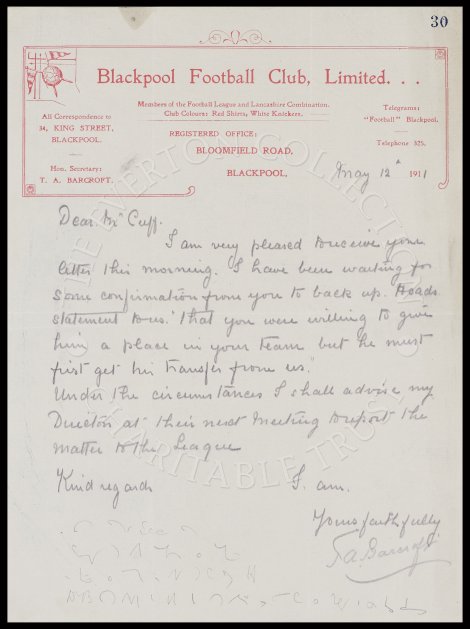 30
Blackpool Football Club, Limited. . .
Members of the Football League and Lancashire Combination.
Club Colours: Red Shirts, White Knickers.
All Correspondence to
34, KING STREET,
BLACKPOOL.
Hon. Secretary:
T. A. BARCROFT.
REGISTERED OFFICE:
BLOOMFIELD ROAD,
BLACKPOOL,
Telegrams:
"Football" Blackpool.
Telephone 325.
May 12th 1911
Dear Mr Cuff.
I am very pleased to receive your
letter this morning. I have been waiting for
some confirmation from you to back up
statement to us. "That you were willing to give
him a place in your team but he must
first get his transfer from us."
Under the circumstances I shall advise my
Directors at their next meeting to report the
matter to the League
Kind regards
I am.
Yours faithfully
T.A. Barcroft
THE EVERTON COLLECTION
CHARITABLE TRUST